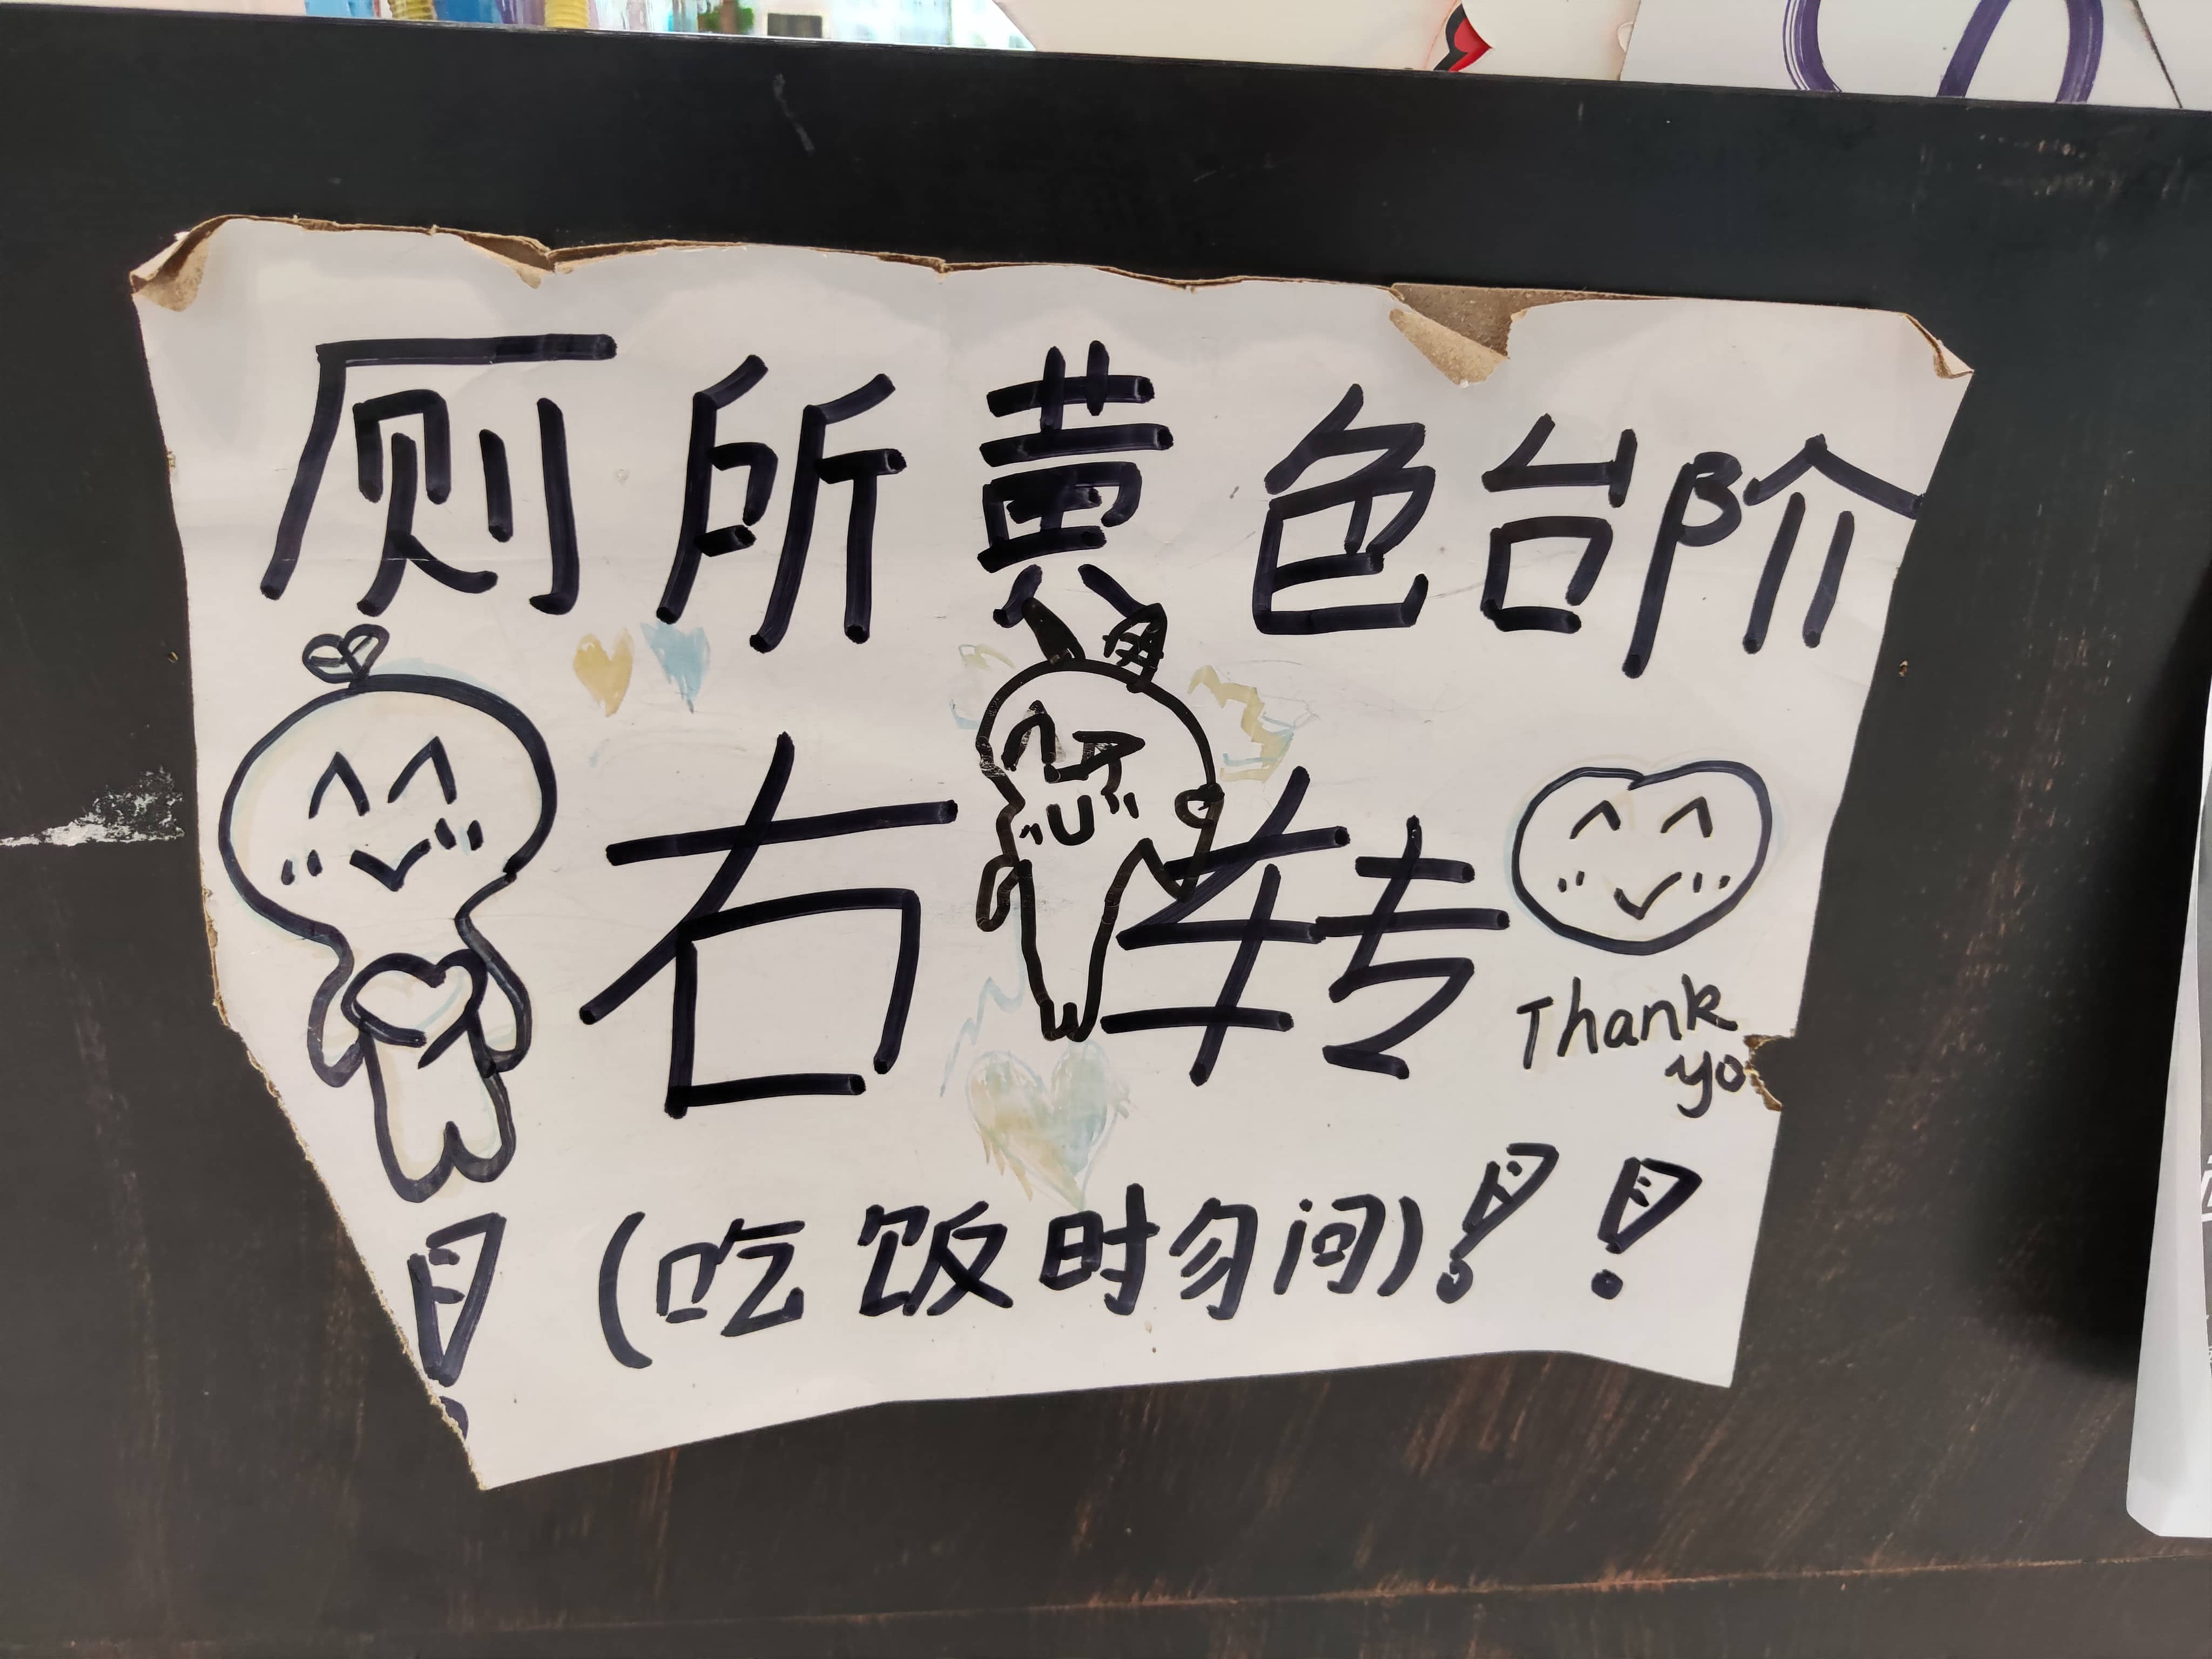 厕所黄色台阶
右转
Thank
yo
(吃饭时勿问)!!